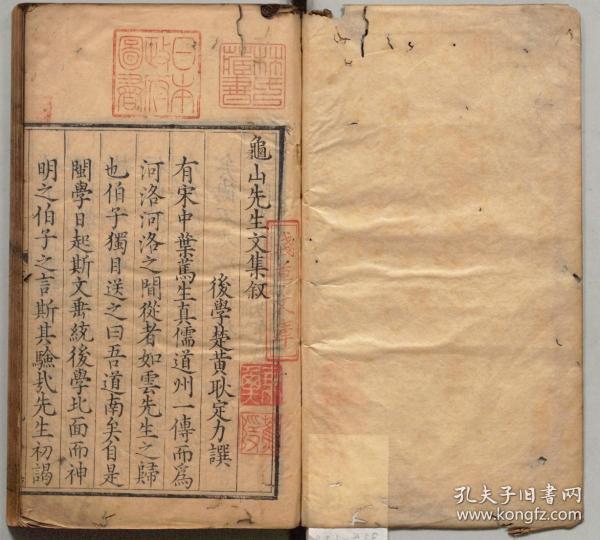 龜山先生文集叙
後學楚黄耿定力譔
有宋中葉篤生真儒道州一傳而爲
河洛河洛之間從者如雲先生之歸
也伯子獨目送之曰吾道南矣自是
閩學日起斯文垂統後學北面而神
明之伯子之言斯其驗弎先生初謁
日本
政府
圖書
林氏
藏書
淺草文庫
孔夫子旧书网
www.kongfz.com